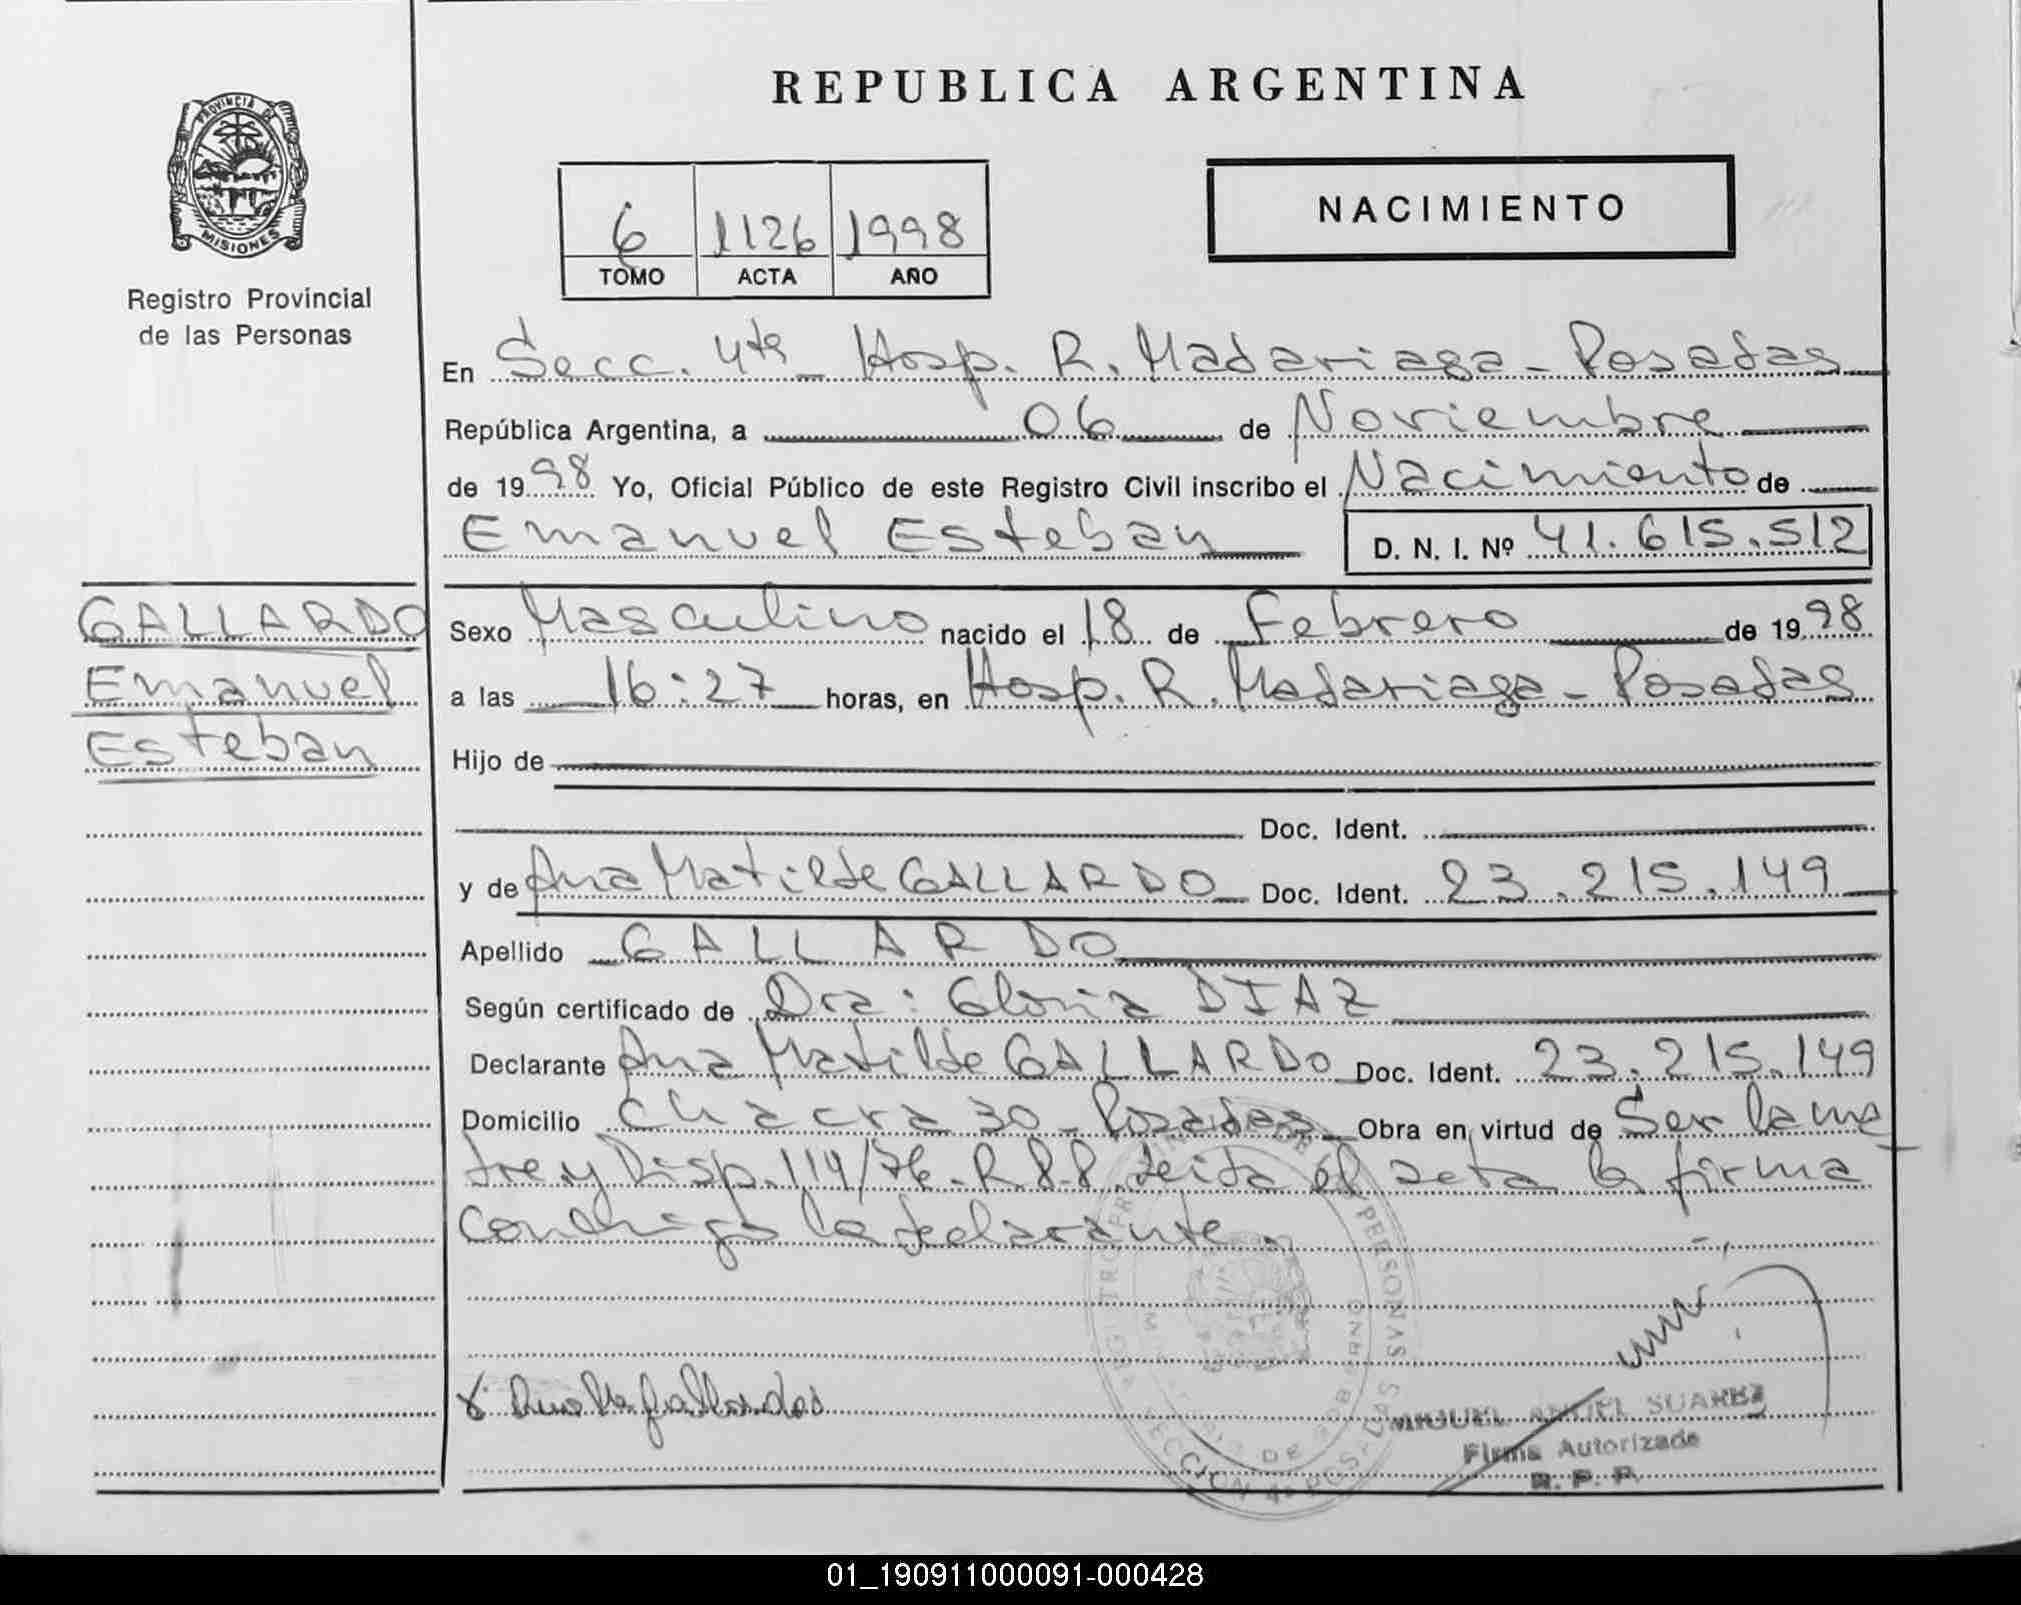 REPUBLICA ARGENTINA
PROVINCIA DE
MISIONES
Registro Provincial
de las Personas
6 1126 1998
TOMO ACTA AÑO
NACIMIENTO
En Secc. 4ta Hosp. R. Madariaga - Posadas
República Argentina, a 06 de Noviembre
de 1998 Yo, Oficial Público de este Registro Civil inscribo el Nacimiento de
Emanuel Esteban D. N. I. Nº 41.615.512
GALLARDO
Emanuel
Esteban
Sexo Masculino nacido el 18 de Febrero de 1998
a las 16:27 horas, en Hosp. R. Madariaga - Posadas
Hijo de
Doc. Ident.
y de Ana Matilde GALLARDO Doc. Ident. 23.215.149
Apellido GALLARDO
Según certificado de Dra: Gloria DIAZ
Declarante Ana Matilde GALLARDO Doc. Ident. 23.215.149
Domicilio Chacra 30 - Posadas Obra en virtud de Ser la ma
dre y Disp. 114/76. R.P.P. leida el acta la firma
conmigo la declarante.
MIGUEL ANGEL SUAREZ
Firma Autorizada
R. P. P.
01_190911000091-000428